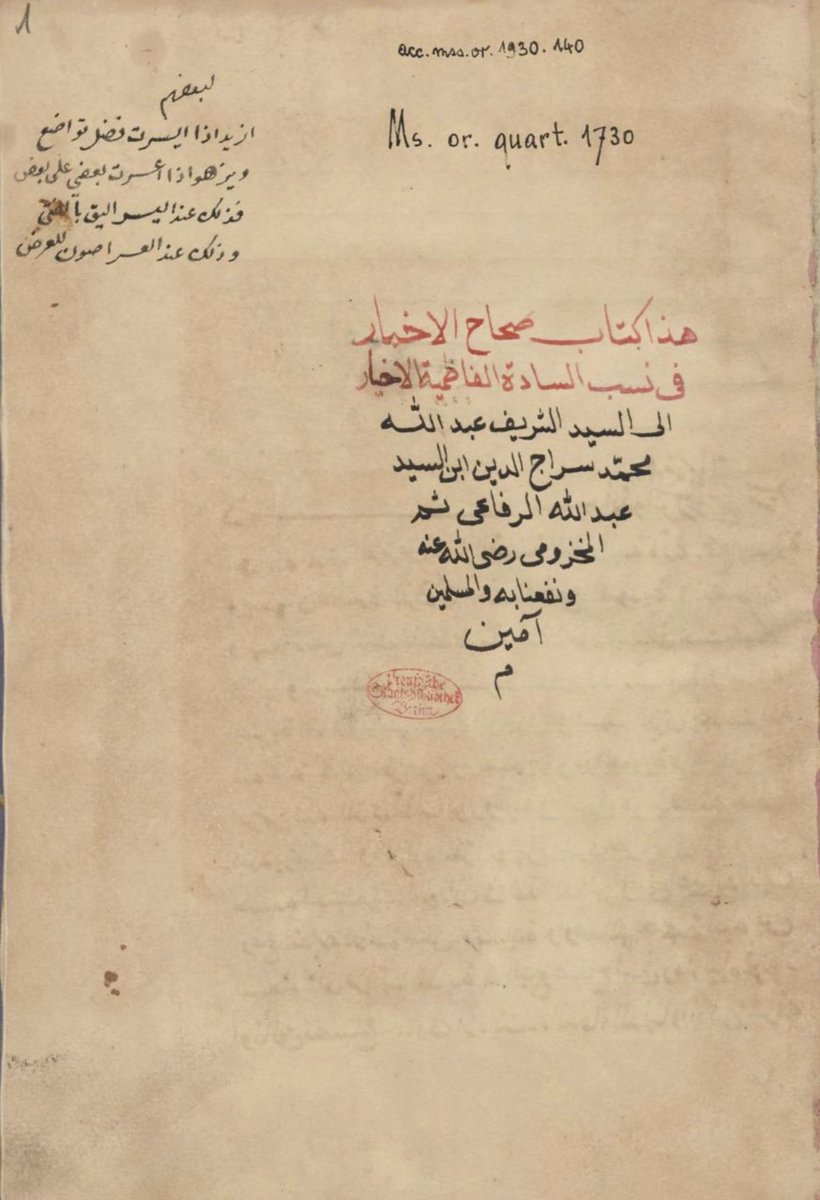 1
acc. mss. or. 1930. 140
Ms. or. quart. 1730
لبعضهم
ازيد اذا ايسرت فضل تواضع
ويزهو اذا اعسرت بعضي على بعض
فذلك عند اليسر اليق بالفتى
وذلك عند العسر اصون للعرض
هذا كتاب صحاح الاخبار
فى نسب السادة الفاطمية الاخيار
الى السيد الشريف عبد الله
محمّد سراج الدين ابن السيد
عبد الله الرفاعى ثم
المخزومى رضى الله عنه
ونفعنا به والمسلمين
آمين
م
Preußische
Staatsbibliothek
Berlin